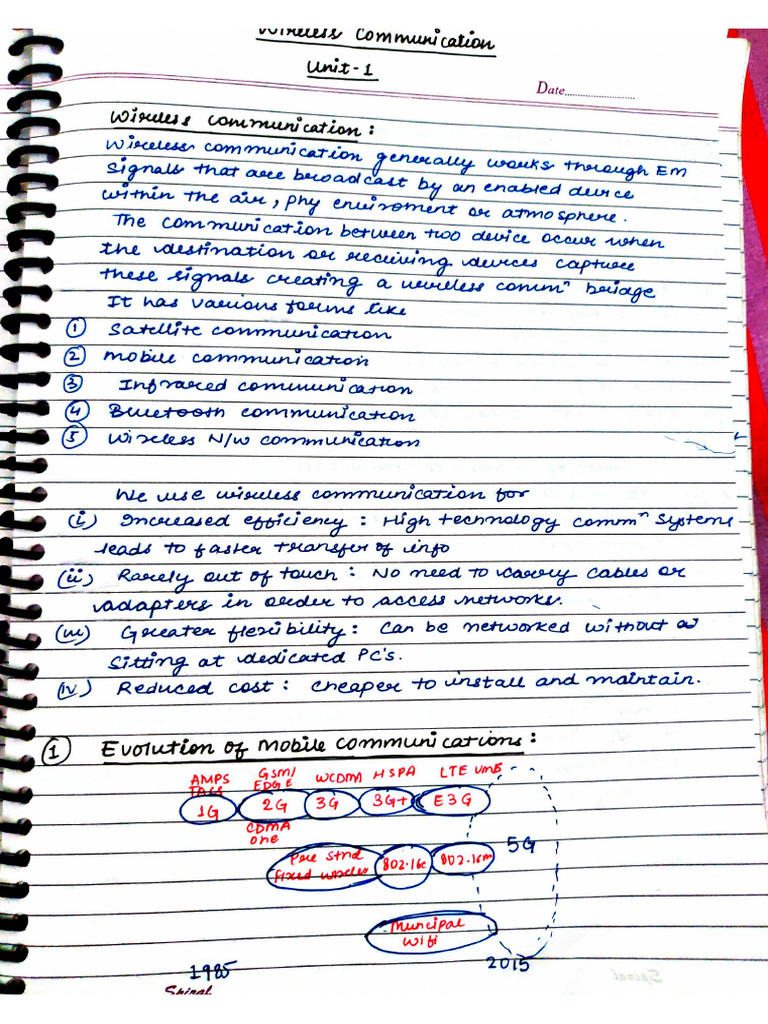 Wireless Communication
Unit-1
Date
Wireless Communication:
Wireless communication generally works through EM
signals that are broadcast by an enabled device
within the air, phy enviroment or atmosphere.
The communication between two device occur when
the destination or receiving devices capture
these signals creating a wireless commⁿ bridge
It has various forms like
① Satellite communication
② Mobile communication
③ Infrared communication
④ Bluetooth communication
⑤ Wireless N/w communication
We use wireless communication for
(i) Increased efficiency : High technology commⁿ systems
leads to faster transfer of info
(ii) Rarely out of touch : No need to carry cables or
adapters in order to access networks.
(iii) Greater flexibility : Can be networked without
sitting at dedicated PC's.
(iv) Reduced cost : Cheaper to install and maintain.
① Evolution of Mobile Communications :
AMPS GSM/ WCDMA HSPA LTE UMB
TACS EDGE
1G 2G 3G 3G+ E3G
CDMA
one
5G
Pre stnd 802.16e 802.16m
fixed wireless
Muncipal
wifi
1985 2015
Spiral